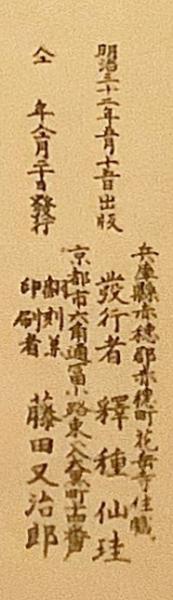 明治三十二年五月十五日出版
仝 年八月二十日發行
兵庫縣赤穂郡赤穂町花岳寺住職
發行者 釋種仙珪
京都市六角通冨小路東入大黒町十四番
飜刻兼
印刷者 藤田又治郎